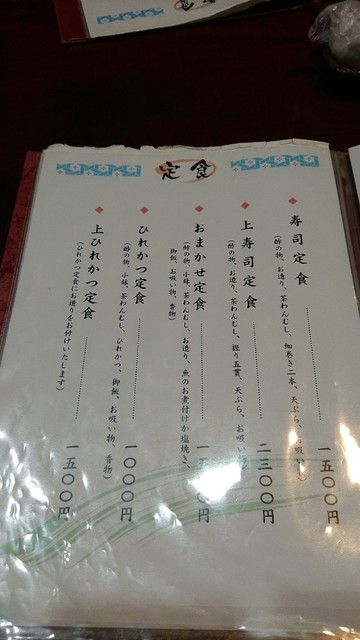 定食
寿司定食 一五〇〇円
(酢の物、お造り、茶わんむし、細巻き二本、天ぷら、お吸い物)
上寿司定食 二三〇〇円
(酢の物、お造り、茶わんむし、握り五貫、天ぷら、お吸い物)
おまかせ定食 一五〇〇円
(酢の物、小鉢、茶わんむし、お造り、魚のお煮付けか塩焼き、
御飯、お吸い物、香物)
ひれかつ定食 一〇〇〇円
(酢の物、小鉢、茶わんむし、ひれかつ、御飯、お吸い物、香物)
上ひれかつ定食 一五〇〇円
(ひれかつ定食にお造りをお付けいたします)